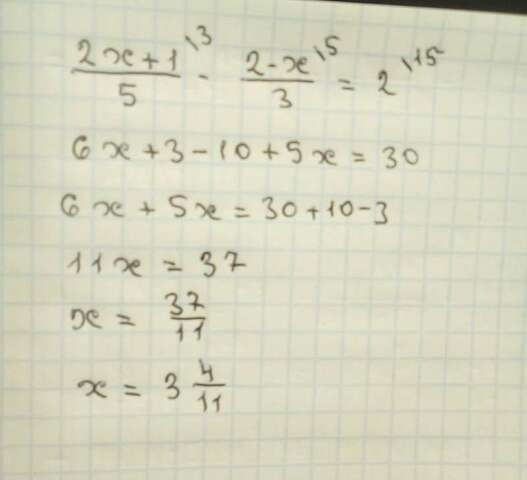 \frac{2x+1}{5}^{\backslash 3} - \frac{2-x}{3}^{\backslash 5} = 2^{\backslash 15}
6x + 3 - 10 + 5x = 30
6x + 5x = 30 + 10 - 3
11x = 37
x = \frac{37}{11}
x = 3\frac{4}{11}